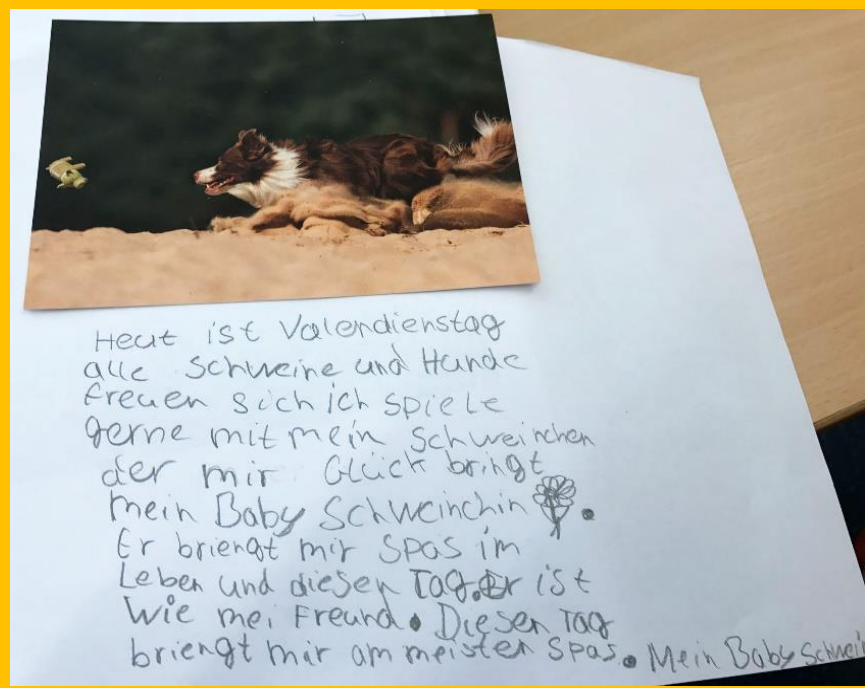 Heut ist Valendienstag
alle Schweine und Hunde
freuen sich ich spiele
gerne mit mein Schweinchen
der mir Glück bringt
mein Baby Schweinchin.
Er briengt mir Spas im
Leben und diesen Tag. Er ist
wie mei Freund. Diesen Tag
briengt mir am meisten Spas. Mein Baby Schwein